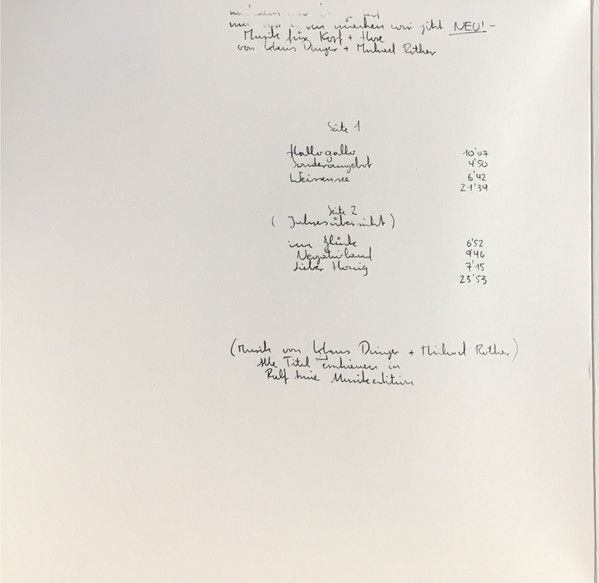 machen wir jetzt NEU! -
Musik für Kopf + Hose
von Klaus Dinger + Michael Rother
Seite 1
Hallogallo 10'07
Sonderangebot 4'50
Weissensee 6'42
21'39
Seite 2
( Jahresübersicht )
im Glück 6'52
Negativland 9'46
Lieber Honig 7'15
23'53
(Musik von Klaus Dinger + Michael Rother)
Alle Titel erschienen in
Ralf Arnie Musikedition